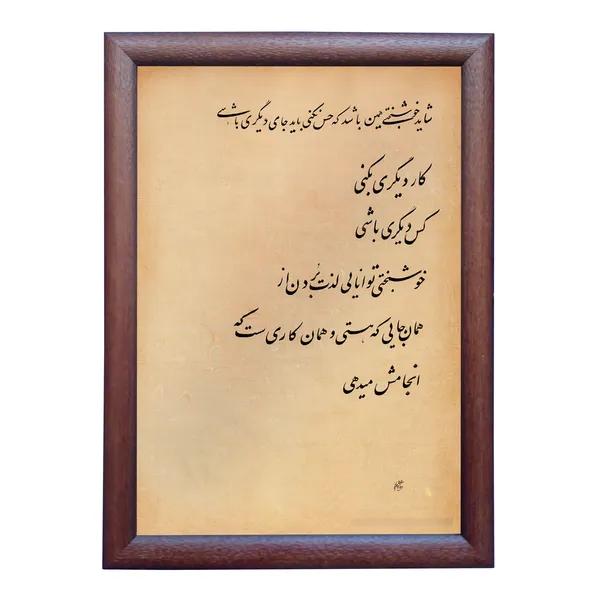 شاید خوشبختی همین باشد که حس نکنی باید جای دیگری باشی
کار دیگری بکنی
کس دیگری باشی
خوشبختی توانایی لذت بردن از
همان جایی که هستی و همان کاری ست که
انجامش میدهی